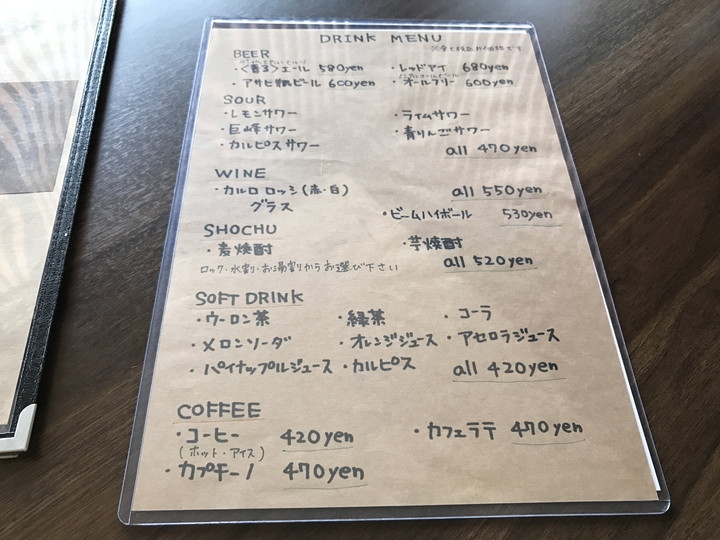 DRINK MENU
※全て税込み価格です
BEER
・〈香る〉エール 580yen
・レッドアイ 680yen
・アサヒ瓶ビール 600yen
・オールフリー 600yen
SOUR
・レモンサワー
・ライムサワー
・巨峰サワー
・青りんごサワー
・カルピスサワー
all 470yen
WINE
・カルロ ロッシ(赤・白)
グラス
all 550yen
・ビームハイボール 530yen
SHOCHU
・麦焼酎
・芋焼酎
ロック・水割・お湯割りからお選び下さい
all 520yen
SOFT DRINK
・ウーロン茶 ・緑茶 ・コーラ
・メロンソーダ ・オレンジジュース ・アセロラジュース
・パイナップルジュース ・カルピス all 420yen
COFFEE
・コーヒー 420yen
(ホット・アイス)
・カフェラテ 470yen
・カプチーノ 470yen